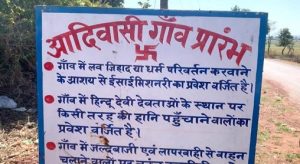 आदिवासी गाँव प्रारंभ
गाँव में लव जिहाद या धर्म परिवर्तन करवाने
के आशय से ईसाई मिशनरी का प्रवेश वर्जित है।
गाँव में हिन्दू देवी देवताओं के स्थान पर
किसी तरह की हानि पहुँचाने वालों का
प्रवेश वर्जित है।
गाँव में जल्दबाजी एवं लापरवाही से वाहन
चलाने वालों पर